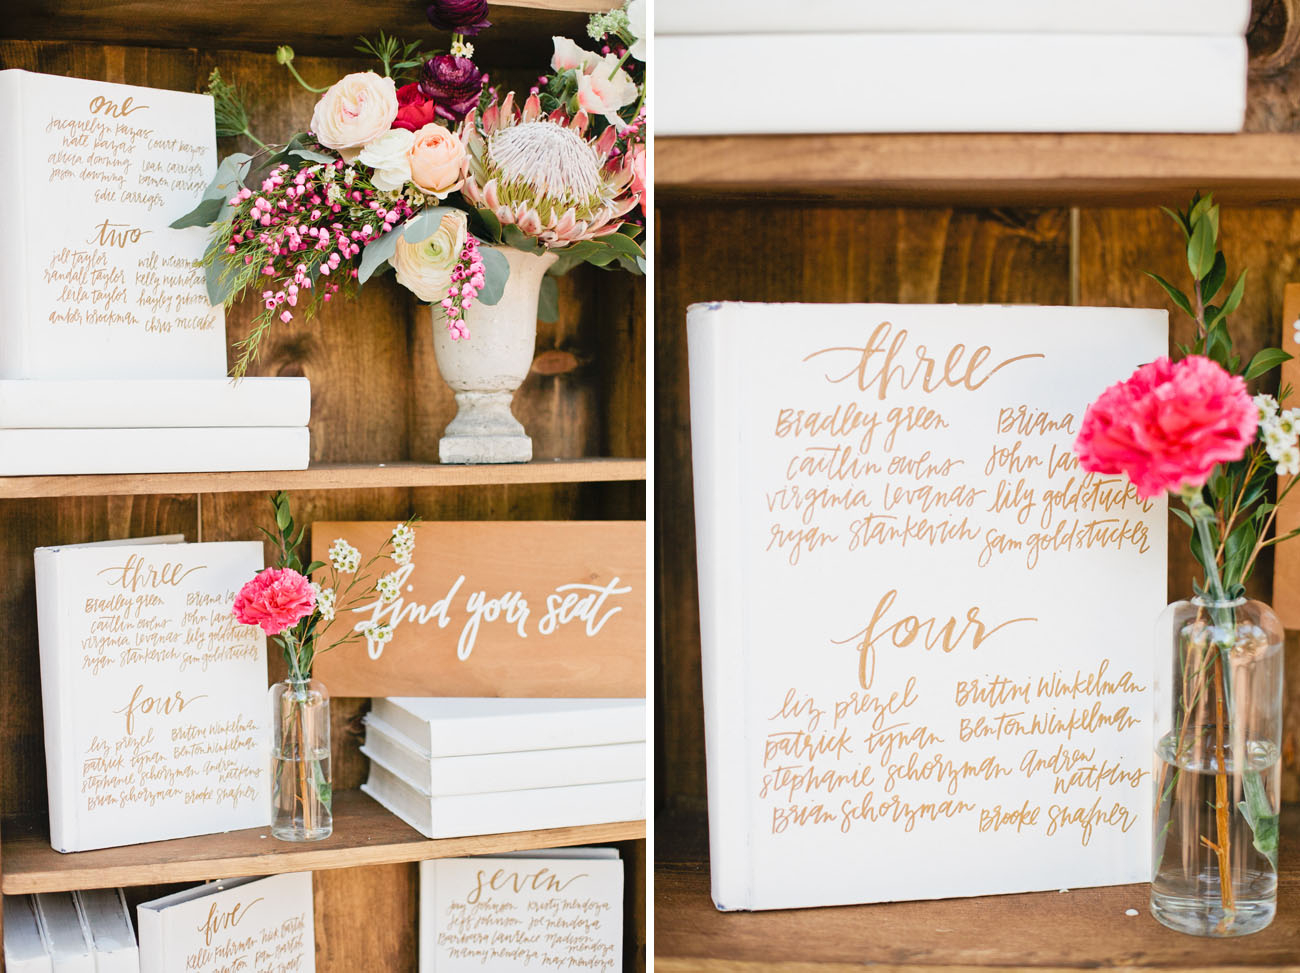 one
Jacquelyn Kazas
Nate Kazas Court Kazas
Alicia Downing Leah Carriger
Jason Downing Damon Carriger
Edie Carriger
two
Jill Taylor Will
Randall Taylor Kelly Nicholas
Leila Taylor Hayley Gibson
Amber Brockman Chris McCabe
three
Bradley Green Briana
Caitlin Owens John
Virginia Levanas Lily Goldstucker
Ryan Stankevich Sam Goldstucker
four
Liz Prezel Brittni Winkelman
Patrick Tynan Benton Winkelman
Stephanie Schorzman Andrew
Natkins
Brian Schorzman Brooke Shafner
find your seat
five
Kelli Fuhrman Nick
Pam
seven
Jay Johnson Kristy Mendoza
Jeff Johnson Joe Mendoza
Barbara Laurence Madison
Mendoza
Manny Mendoza Max Mendoza
three
Bradley Green Briana
Caitlin Owens John
Virginia Levanas Lily Goldstucker
Ryan Stankevich Sam Goldstucker
four
Liz Prezel Brittni Winkelman
Patrick Tynan Benton Winkelman
Stephanie Schorzman Andrew
Natkins
Brian Schorzman Brooke Shafner